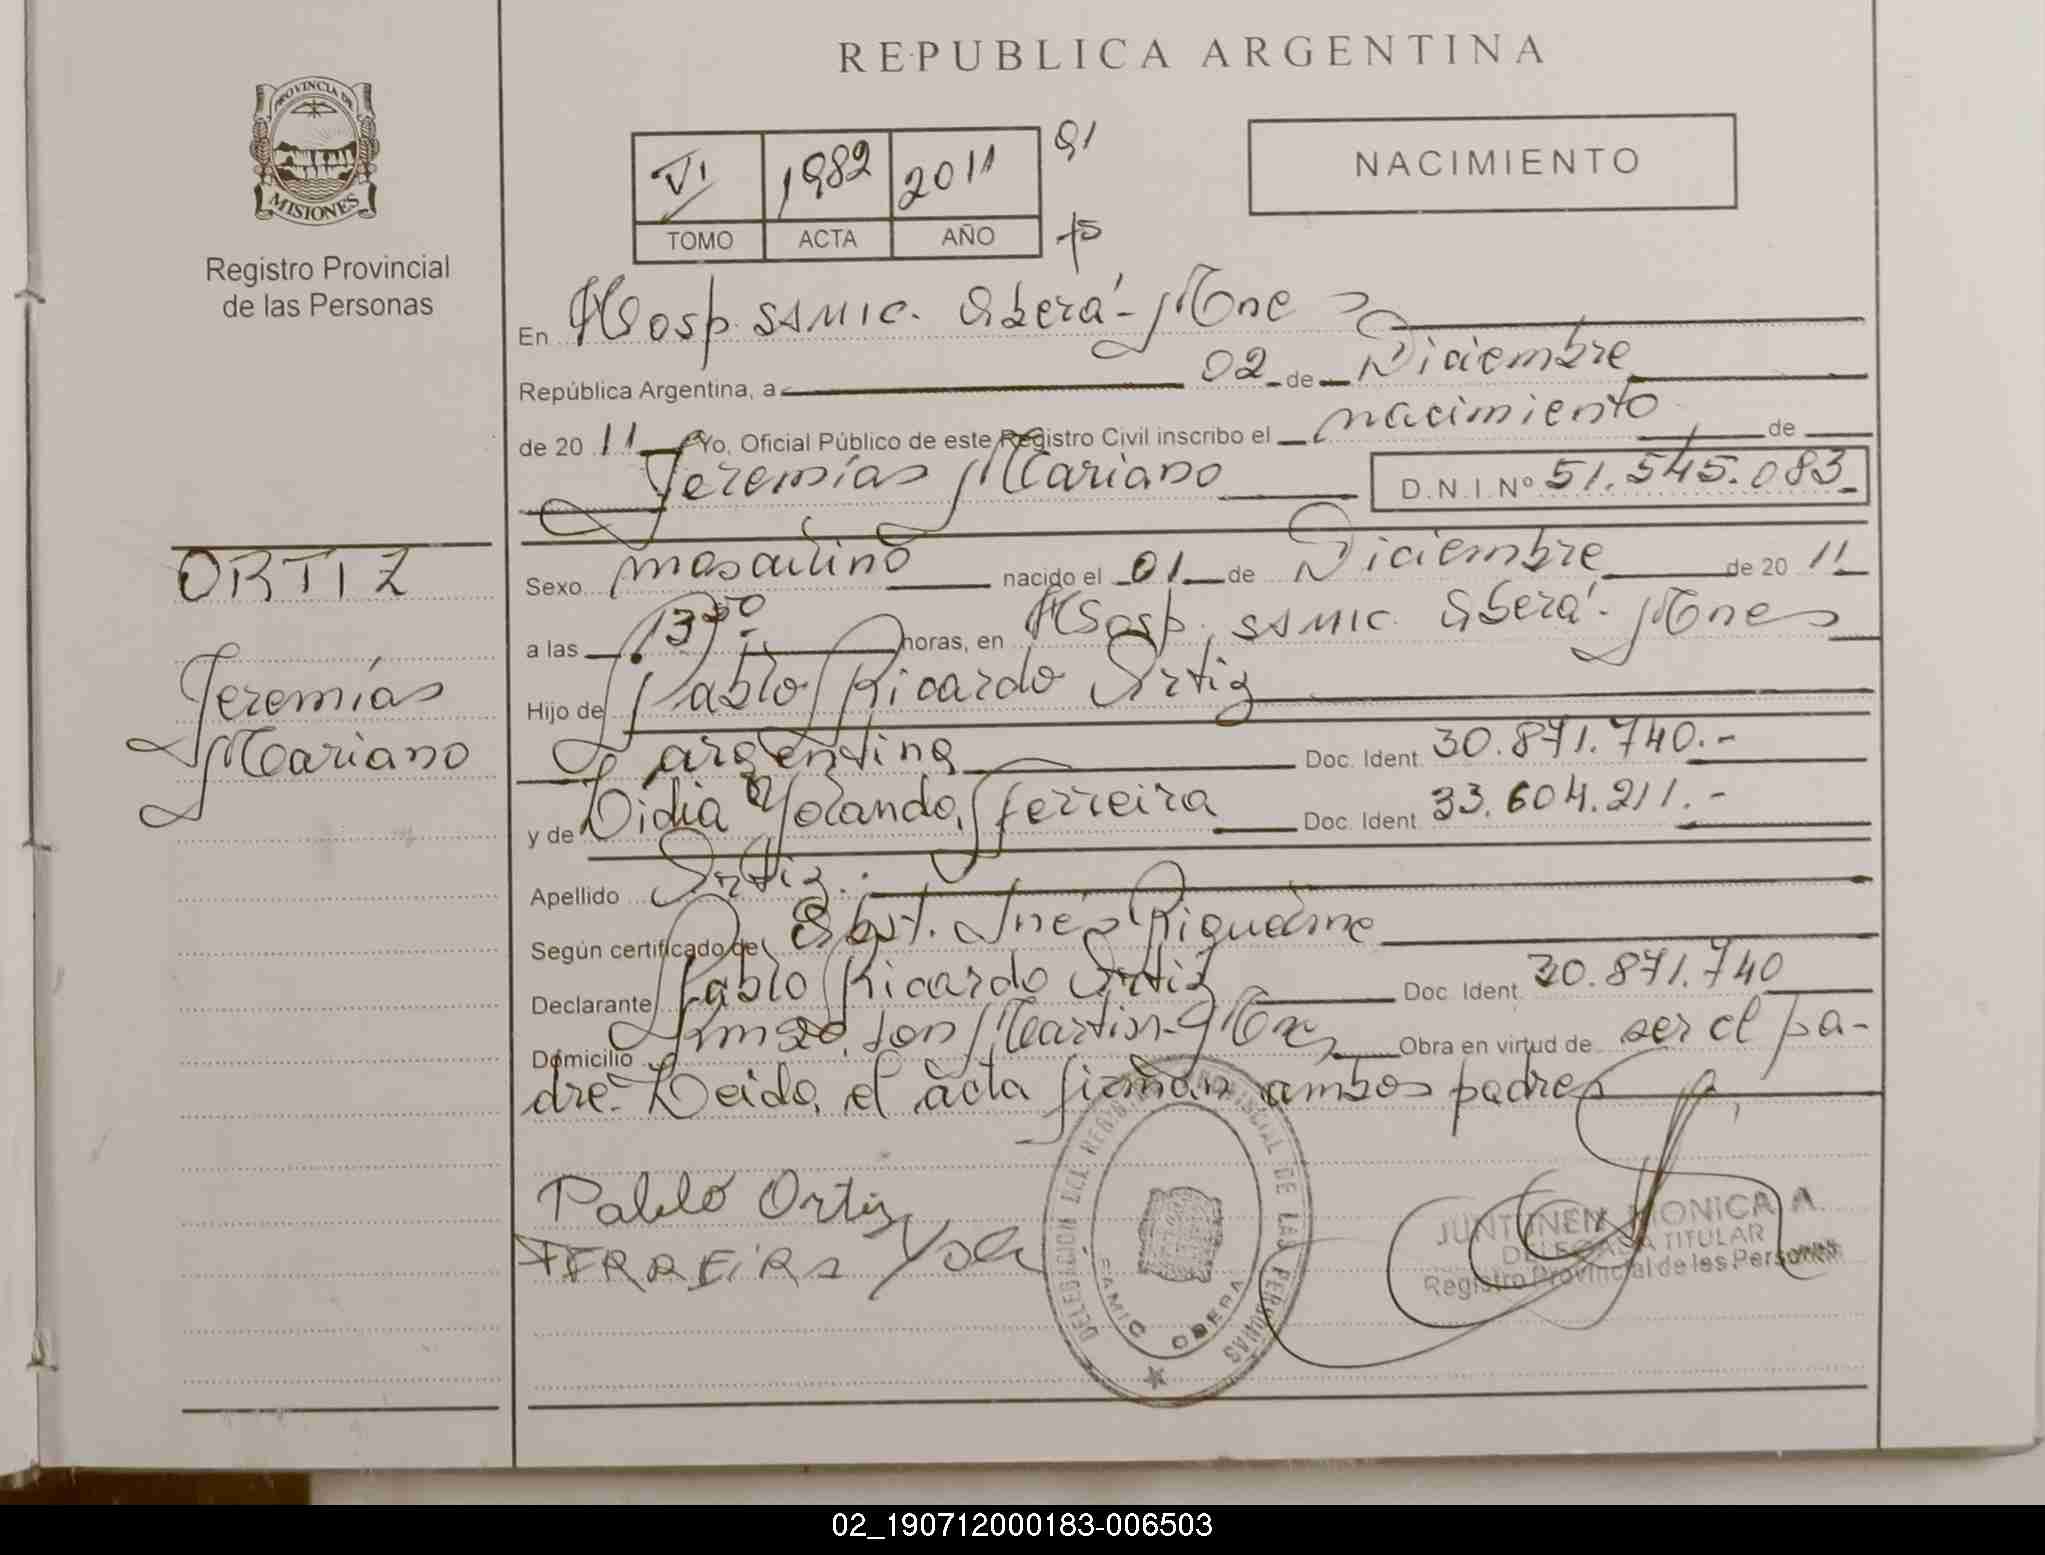 REPUBLICA ARGENTINA
PROVINCIA DE
MISIONES
Registro Provincial
de las Personas
VI 1982 2011 91
TOMO ACTA AÑO
NACIMIENTO
En Hosp. SAMIC. Oberá - Mnes
República Argentina, a 02 de Diciembre
de 20 11 Yo, Oficial Público de este Registro Civil inscribo el nacimiento de
Jeremías Mariano D.N.I. Nº 51.545.083
ORTIZ
Jeremías
Mariano
Sexo masculino nacido el 01 de Diciembre de 20 11
a las horas, en Hosp. SAMIC. Oberá - Mnes
Hijo de Pablo Ricardo Ortiz
argentina Doc. Ident. 30.871.740.-
y de Lidia Yolanda Ferreira Doc. Ident. 33.604.211.-
Apellido Ortiz.
Según certificado de Obst. Inés Riquelme
Declarante Pablo Ricardo Ortiz Doc. Ident. 30.871.740
Domicilio San Martín - Obra en virtud de ser el pa-
dre.- Leida el acta firman ambos padres
Pablo Ortiz
FERREIRA
DELEGACION DEL REGISTRO PROVINCIAL DE LAS PERSONAS
SAMIC OBERA
JUNTUNEN MONICA A.
DELEGADA TITULAR
Registro Provincial de las Personas
02_190712000183-006503